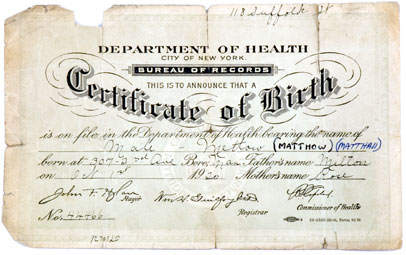 118 Suffolk St
DEPARTMENT OF HEALTH
CITY OF NEW YORK.
BUREAU OF RECORDS
THIS IS TO ANNOUNCE THAT A
Certificate of Birth
is on file in the Department of Health bearing the name of
Male (MATTHOW) (MATTHAU)
born at 307-2nd Ave Boro, Man Father's name Milton
on Oct 1st 1920 Mother's name Rose
John F. Hylan
Mayor Wm. H. Guilfoy
Registrar Commissioner of Health
No.